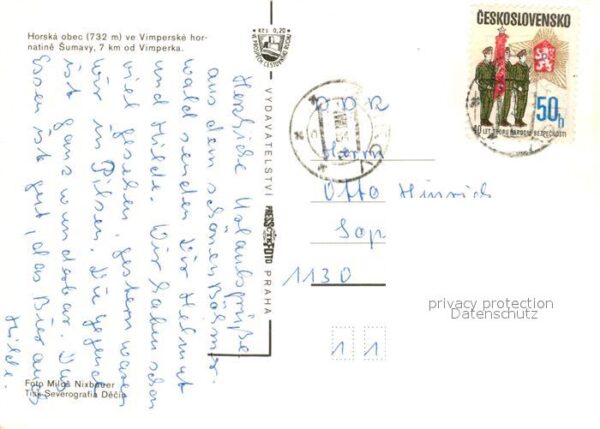 Horská obec (732 m) ve Vimperské hor-
natině Šumavy, 7 km od Vimperka.
Kčs 0,20
ČESKOSLOVENSKO
50h
40 LET SBORU NÁRODNÍ BEZPEČNOSTI
Herzliche Urlaubsgrüße
aus dem schönen Böhmer-
wald senden Dir Helmut
und Hilde. Wir haben schon
viel gesehen, gestern waren
wir in Pilsen. Die Gegend
ist ganz wunderbar. Das
Essen ist gut, das Bier auch
Hilde.
VYDAVATELSTVÍ PRESSFOTO PRAHA
DDR
Herrn
Otto Heinrich
1130
11
privacy protection
Datenschutz
Foto Miloš Nixbauer
Tisk Severografia Děčín